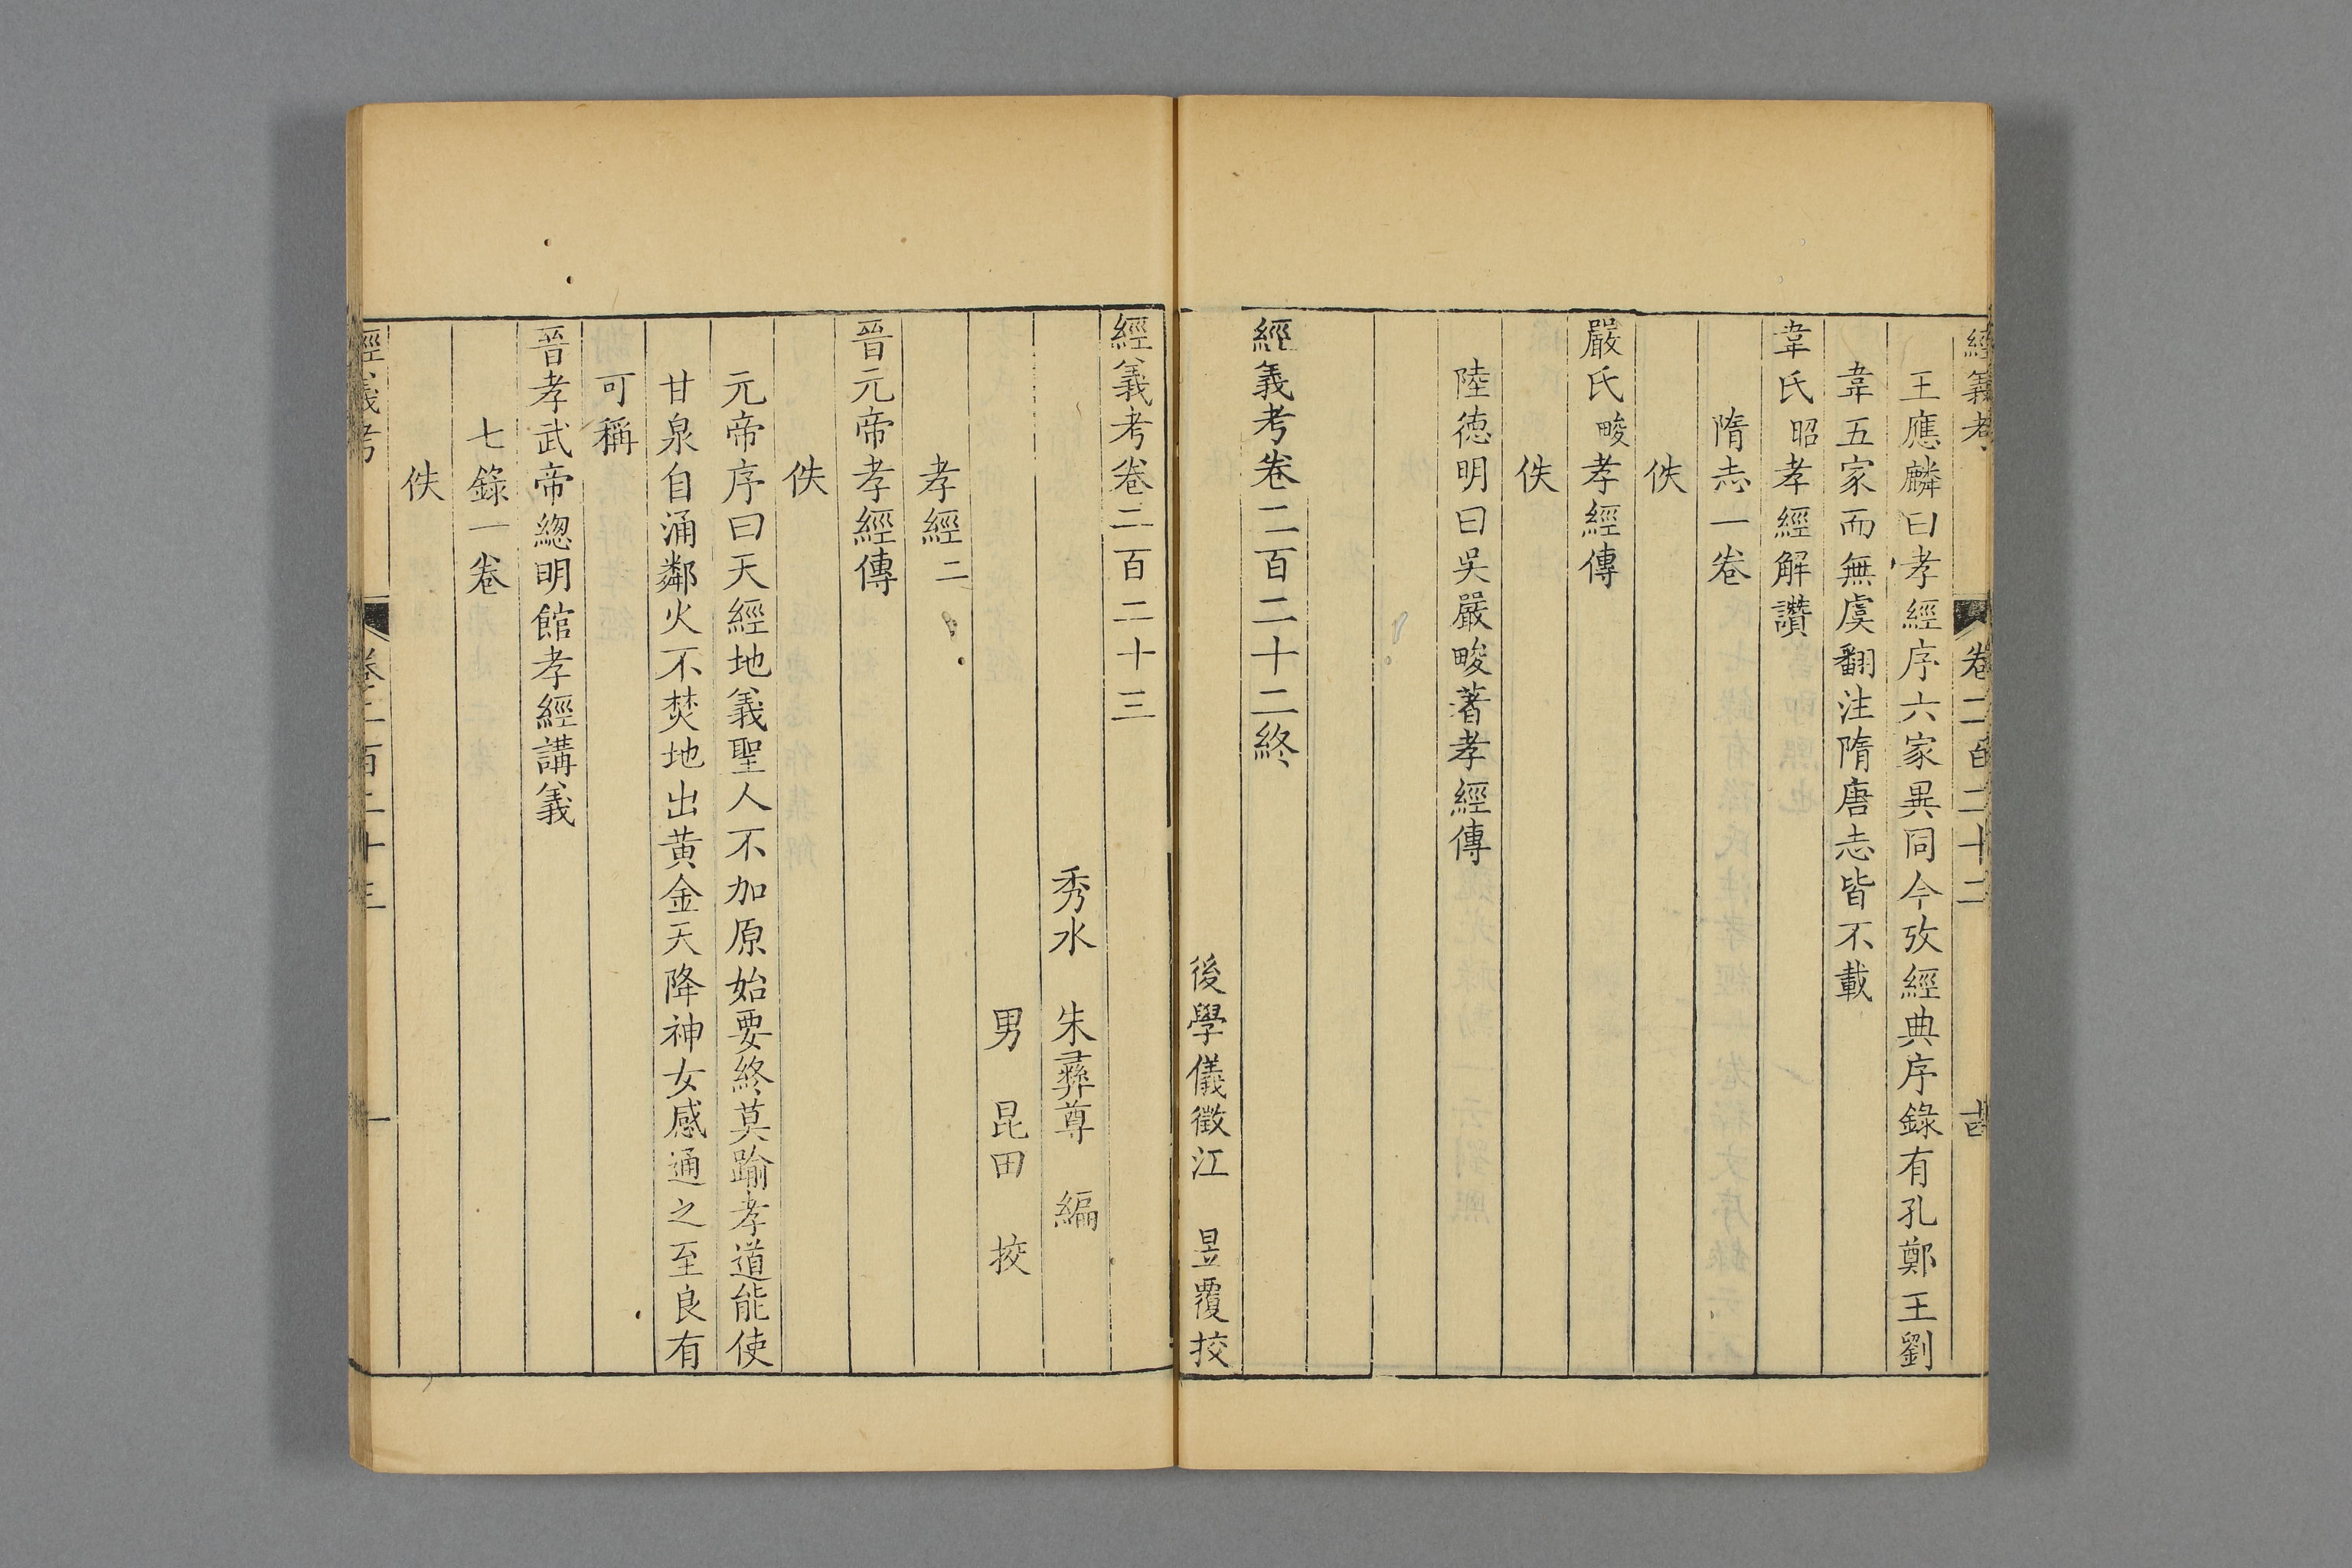 經義考 卷二百二十二
王應麟曰孝經序六家異同今攷經典序錄有孔鄭王劉
韋五家而無虞翻注隋唐志皆不載
韋氏昭孝經解讚
隋志一卷
佚
嚴氏畯孝經傳
佚
陸德明曰吳嚴畯著孝經傳
經義考卷二百二十二終
後學儀徵江 昱覆挍
經義考卷二百二十三
秀水 朱彝尊 編
男 昆田 挍
孝經二
晉元帝孝經傳
佚
元帝序曰天經地義聖人不加原始要終莫踰孝道能使
甘泉自涌鄰火不焚地出黃金天降神女感通之至良有
可稱
晉孝武帝緫明館孝經講義
七錄一卷
佚
經義考 卷二百二十三 一